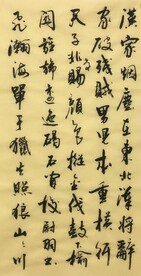 漢家烟塵在東北漢將辭
家破殘賊男兒本自重橫行
天子非常賜顏色摐金伐鼓下榆
關旌旆逶迤碣石間校尉羽書
飛瀚海單于獵火照狼山山川